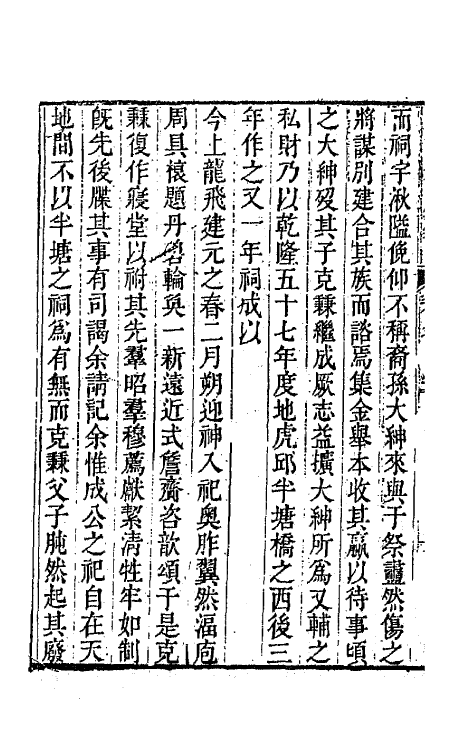 而祠宇湫隘俛仰不稱裔孫大紳來與于祭衋然傷之
將謀別建合其族而諮焉集金舉本收其贏以待事頃
之大紳歿其子克秉繼成厥志益擴大紳所爲又輔之
私財乃以乾隆五十七年度地虎邱半塘橋之西後三
年作之又一年祠成以
今上龍飛建元之春二月朔迎神入祀奥阼翼然湢庖
周具榱題丹雘輪奐一新遠近式詹齎咨歆頌于是克
秉復作寢堂以祔其先羣昭羣穆薦獻絜清牲牢如制
旣先後牒其事有司謁余請記余惟成公之祀自在天
地間不以半塘之祠爲有無而克秉父子肫然起其廢